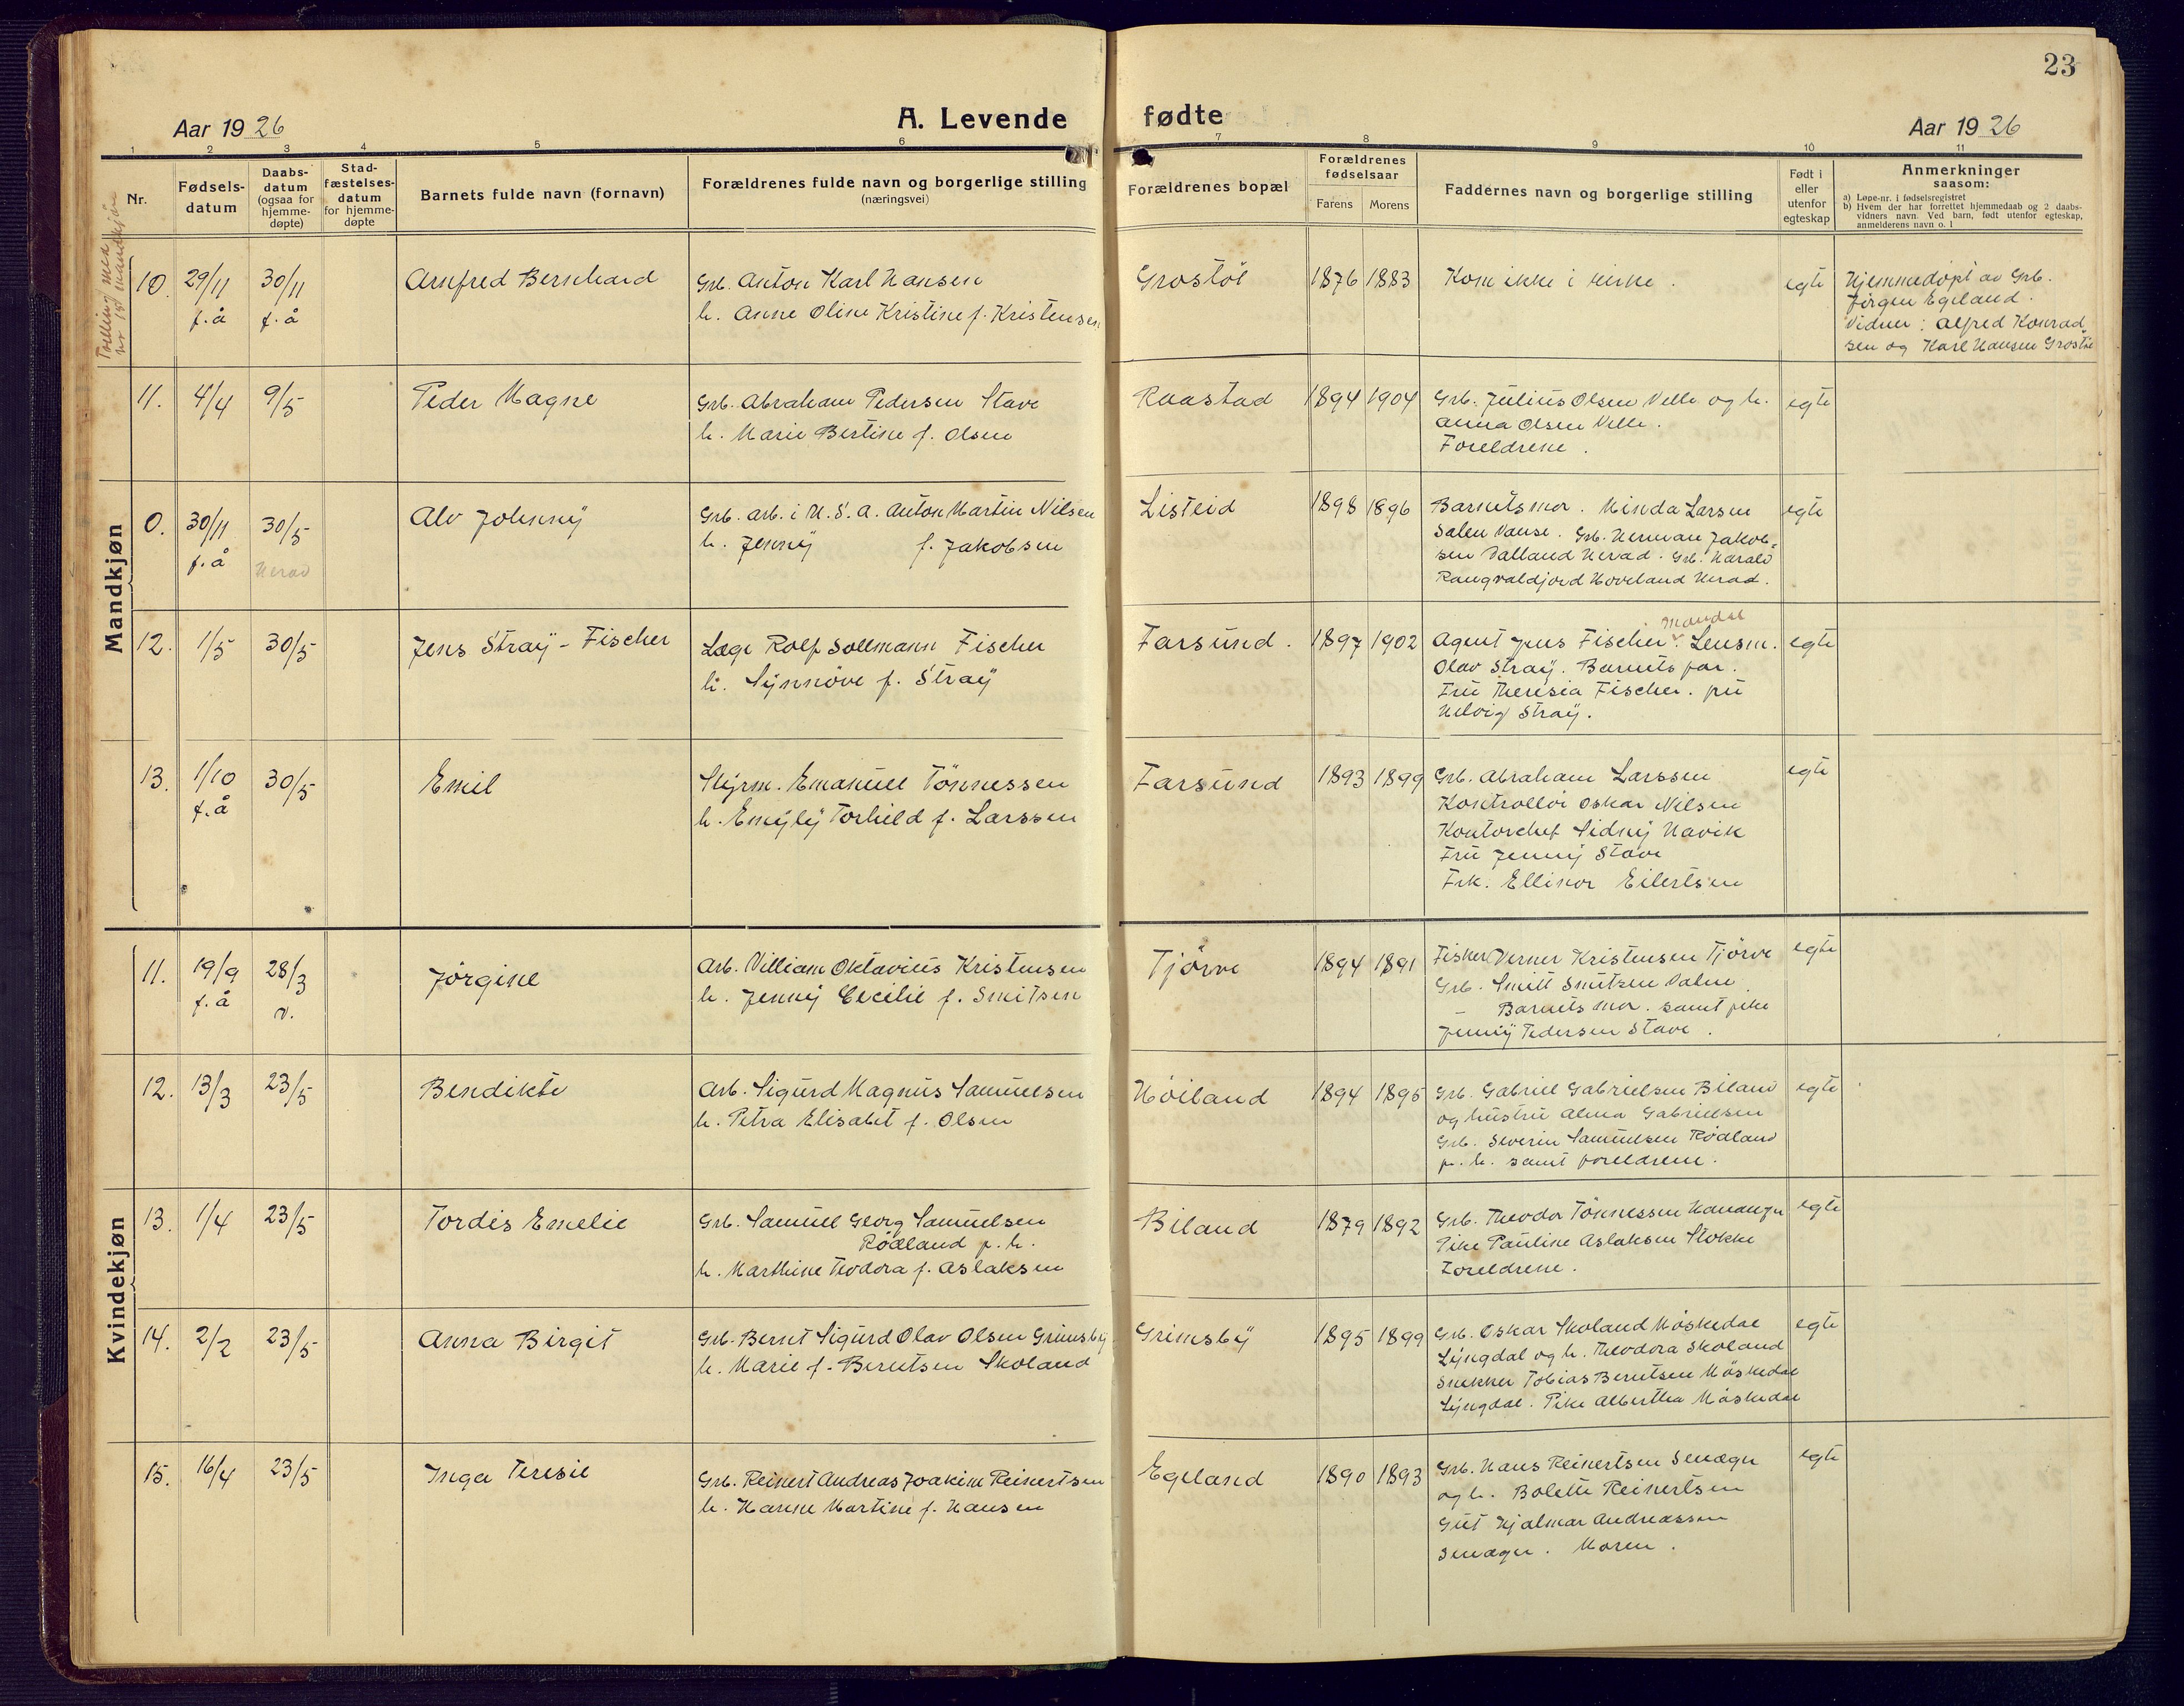 23
Aar 1926
A. Levende
fødte
Aar 1926
1 2 3 4 5 6 7 8 9 10 11
Nr.
Fødsels-
datum
Daabs-
datum
(ogsaa for
hjemme-
døpte)
Stad-
fæstelses-
datum
for hjemme-
døpte
Barnets fulde navn (fornavn)
Forældrenes fulde navn og borgerlige stilling
(næringsvei)
Forældrenes bopæl
Forældrenes
fødselsaar
Farens Morens
Faddernes navn og borgerlige stilling
Født i
eller
utenfor
egteskap
Anmerkninger
saasom:
a) Løpe-nr. i fødselsregistret
b) Hvem der har forrettet hjemmedaab og 2 daabs-
vidners navn. Ved barn, født utenfor egteskap,
anmelderens navn o. l
Tvilling med
nr 15 mandkjøn
Mandkjøn
10. 29/11 f.å 30/11 f.å
Arnfred Bernhard
Grb. Anton Karl Hansen
h. Anne Oline Kristine f. Kristensen
Grostøl 1876 1883
Kom ikke i kirke.
egte
Hjemmedøpt av Grb.
Jørgen Egeland.
Vidner: Alfred Konrad
sen og Karl Hansen Grostøl
11. 4/4 9/5
Peder Magne
Grb. Abraham Pedersen Stave
h. Marie Bertine f. Olsen
Raastad 1894 1904
Grb. Julius Olsen Velle og h.
Anna Olsen Velle.
Foreldrene.
egte
0. 30/11 f.å 30/5 Herad
Alv Johnny
Grb. arb. i U.S.A. Anton Martin Nilsen
h. Jenny f. Jakobsen
Listeid 1898 1896
Barnets mor. Minda Larsen
Salen Vanse. Grb. Herman Jakob-
sen Dalland Herad. Grb. Harald
Rangvaldjord Hoveland Herad.
egte
12. 1/5 30/5
Jens Stray-Fischer
Læge Rolf Sollmann Fischer
h. Synnöve f. Stray
Farsund. 1897 1902
Mandal
Agent Jens Fischer. Lensm.
Olav Stray. Barnets far.
Fru Theresia Fischer. fru
Helvig Stray.
egte
13. 1/10 f.å 30/5
Emil
Styrm. Emanuel Tönnessen
h. Emyly Torhild f. Larssen
Farsund 1893 1899
Grb. Abraham Larssen
Kontrollör Oskar Nilsen
Kontorchef Sidny Havik
Fru Jenny Stave
Frk. Ellinor Eilertsen
egte
Kvindekjøn
11. 19/9 f.å 28/3 v.
Jörgine
Arb. Villiam Oktavius Kristensen
h. Jenny Cecilie f. Smitsen
Tjörve 1894 1891
Fisker Verner Kristensen Tjörve
Grb. Smitt Smitsen Dalen
– Barnets mor. samt pike
Jenny Pedersen Stave.
egte
12. 13/3 23/5
Bendikte
Arb. Sigurd Magnus Samuelsen
h. Petra Elisabet f. Olsen
Höiland 1894 1895
Grb. Gabriel Gabrielsen Biland
og hustru Alma Gabrielsen
Grb. Severin Samuelsen Rödland
p. h. samt foreldrene.
egte
13. 1/4 23/5
Tordis Emelie
Grb. Samuel Georg Samuelsen
Rödland p. h.
h. Marthine Teodora f. Aslaksen
Biland 1879 1892
Grb. Theodor Tönnessen
Pike Pauline Aslaksen Stokke
Foreldrene.
egte
14. 2/2 23/5
Anna Birgit
Grb. Bernt Sigurd Olav Olsen Grimsby
h. Marie f. Berntsen Skoland
Grimsby 1895 1899
Grb. Oskar Skoland Möskedal
Lyngdal og h. Theodora Skoland
Snekker Tobias Berntsen Möskedal
Lyngdal. Pike Albertha Möskedal
egte
15. 16/4 23/5
Inga Teresie
Grb. Reinert Andreas Joakim Reinertsen
h. Hanne Martine f. Hansen
Egeland 1890 1893
Grb. Hans Reinertsen
og h. Bolette Reinertsen
Gut Hjalmar Andreassen
Moren.
egte